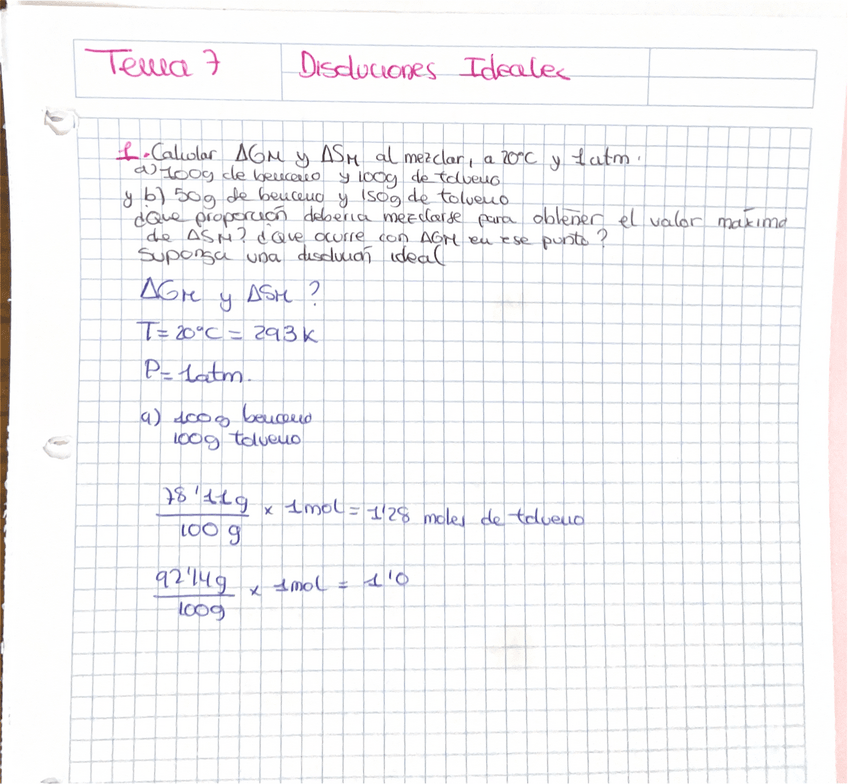 Tema 7 Disoluciones Ideales
1. Calcular ΔGM y ΔSM al mezclar, a 20°C y 1atm.
a) 100g de benceno y 100g de tolueno
y b) 50g de benceno y 150g de tolueno
¿Que proporción debería mezclarse para obtener el valor maximo
de ΔSM? ¿Que ocurre con ΔGM en ese punto?
Suponga una disolución ideal
ΔGM y ΔSM ?
T= 20°C = 293 K
P= 1atm.
a) 100g benceno
100g tolueno
78'11g / 100 g × 1mol = 1'28 moles de tolueno
92'14g / 100g × 1mol = 1'0